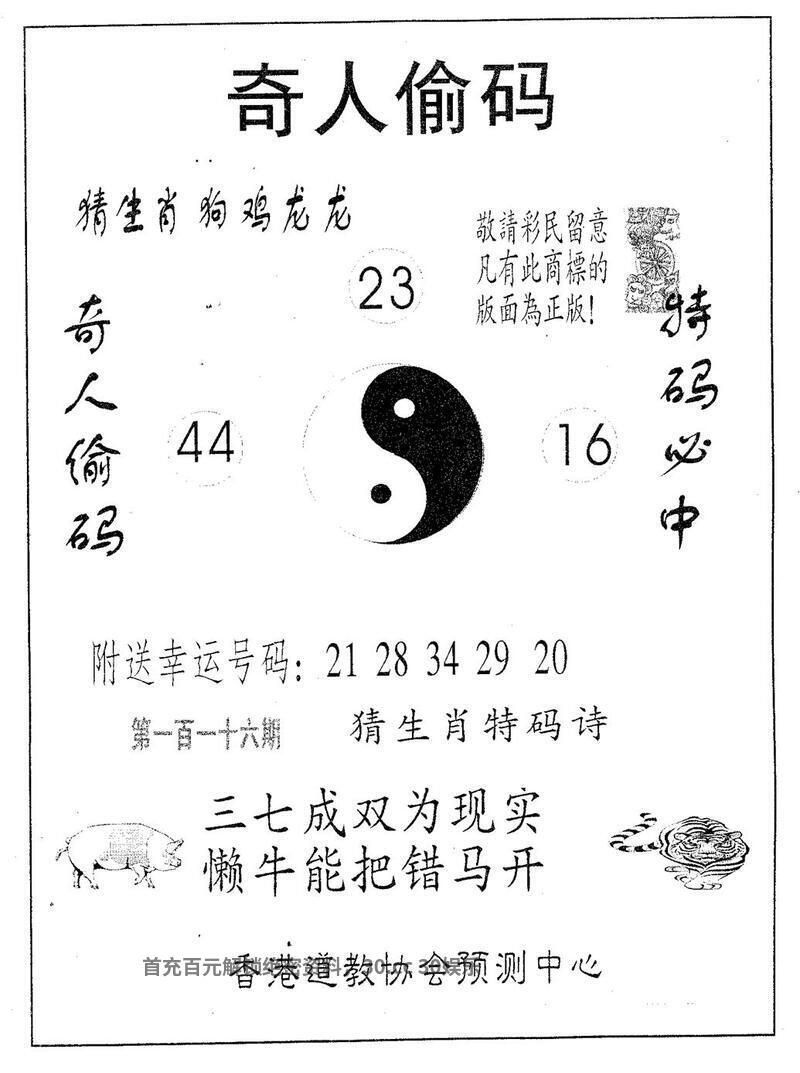 奇人偷码
猜生肖狗鸡龙龙
敬請彩民留意
凡有此商標的
版面為正版!
23
奇人偷码
特码必中
44
16
附送幸运号码: 21 28 34 29 20
第一百一十六期
猜生肖特码诗
三七成双为现实
懒牛能把错马开
香港道教协会预测中心
首充百元解锁绝密资料